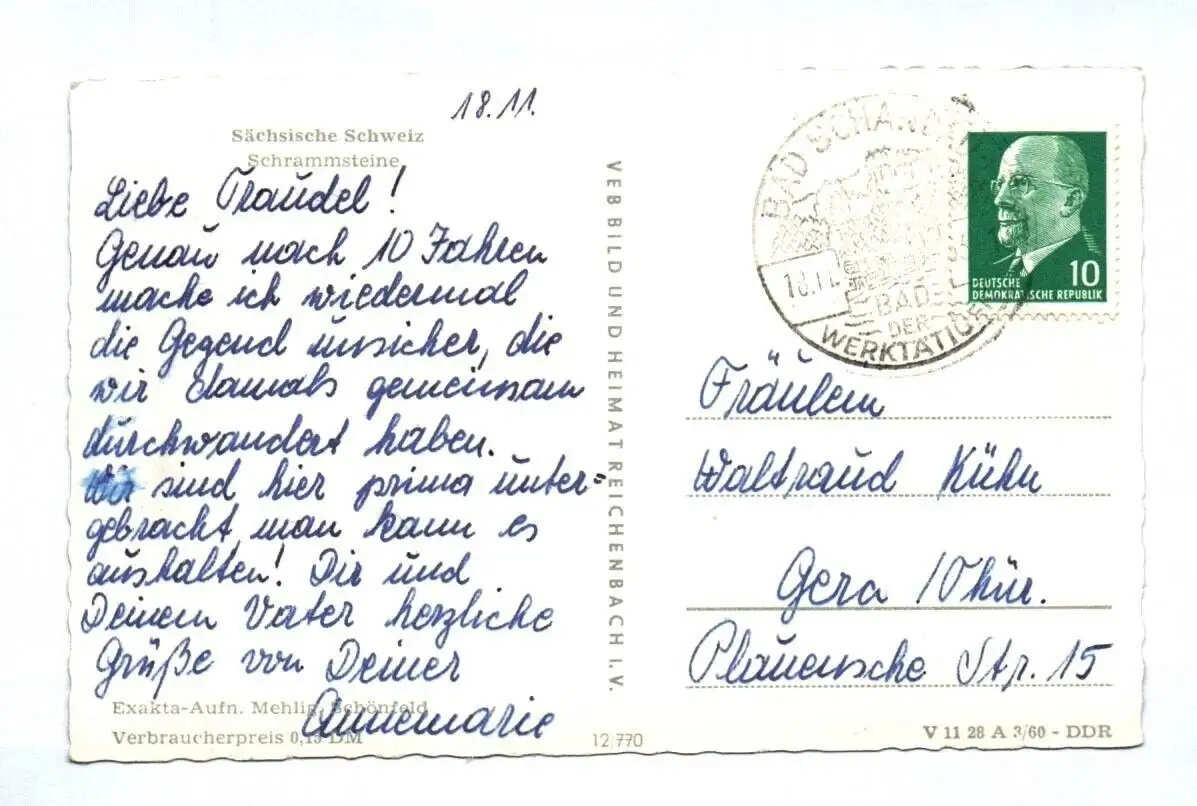 18.11.
Sächsische Schweiz
Schrammsteine
Liebe Traudel!
Genau nach 10 Jahren
mache ich wiedermal
die Gegend unsicher, die
wir damals gemeinsam
durchwandert haben.
Wir sind hier prima unter=
gebracht, man kann es
aushalten! Dir und
Deinem Vater herzliche
Grüße von Deiner
Annemarie
Exakta-Aufn. Mehlig, Schönfeld
Verbraucherpreis 0,15 DM
12/770
VEB BILD UND HEIMAT REICHENBACH I. V.
BAD SCHAND
18.11.
BADE
DER
WERKTÄTIGEN
10
DEUTSCHE
DEMOKRATISCHE REPUBLIK
Fräulein
Waltraud Kühn
Gera / Thür.
Plauensche Str. 15
V 11 28 A 3/60 - DDR